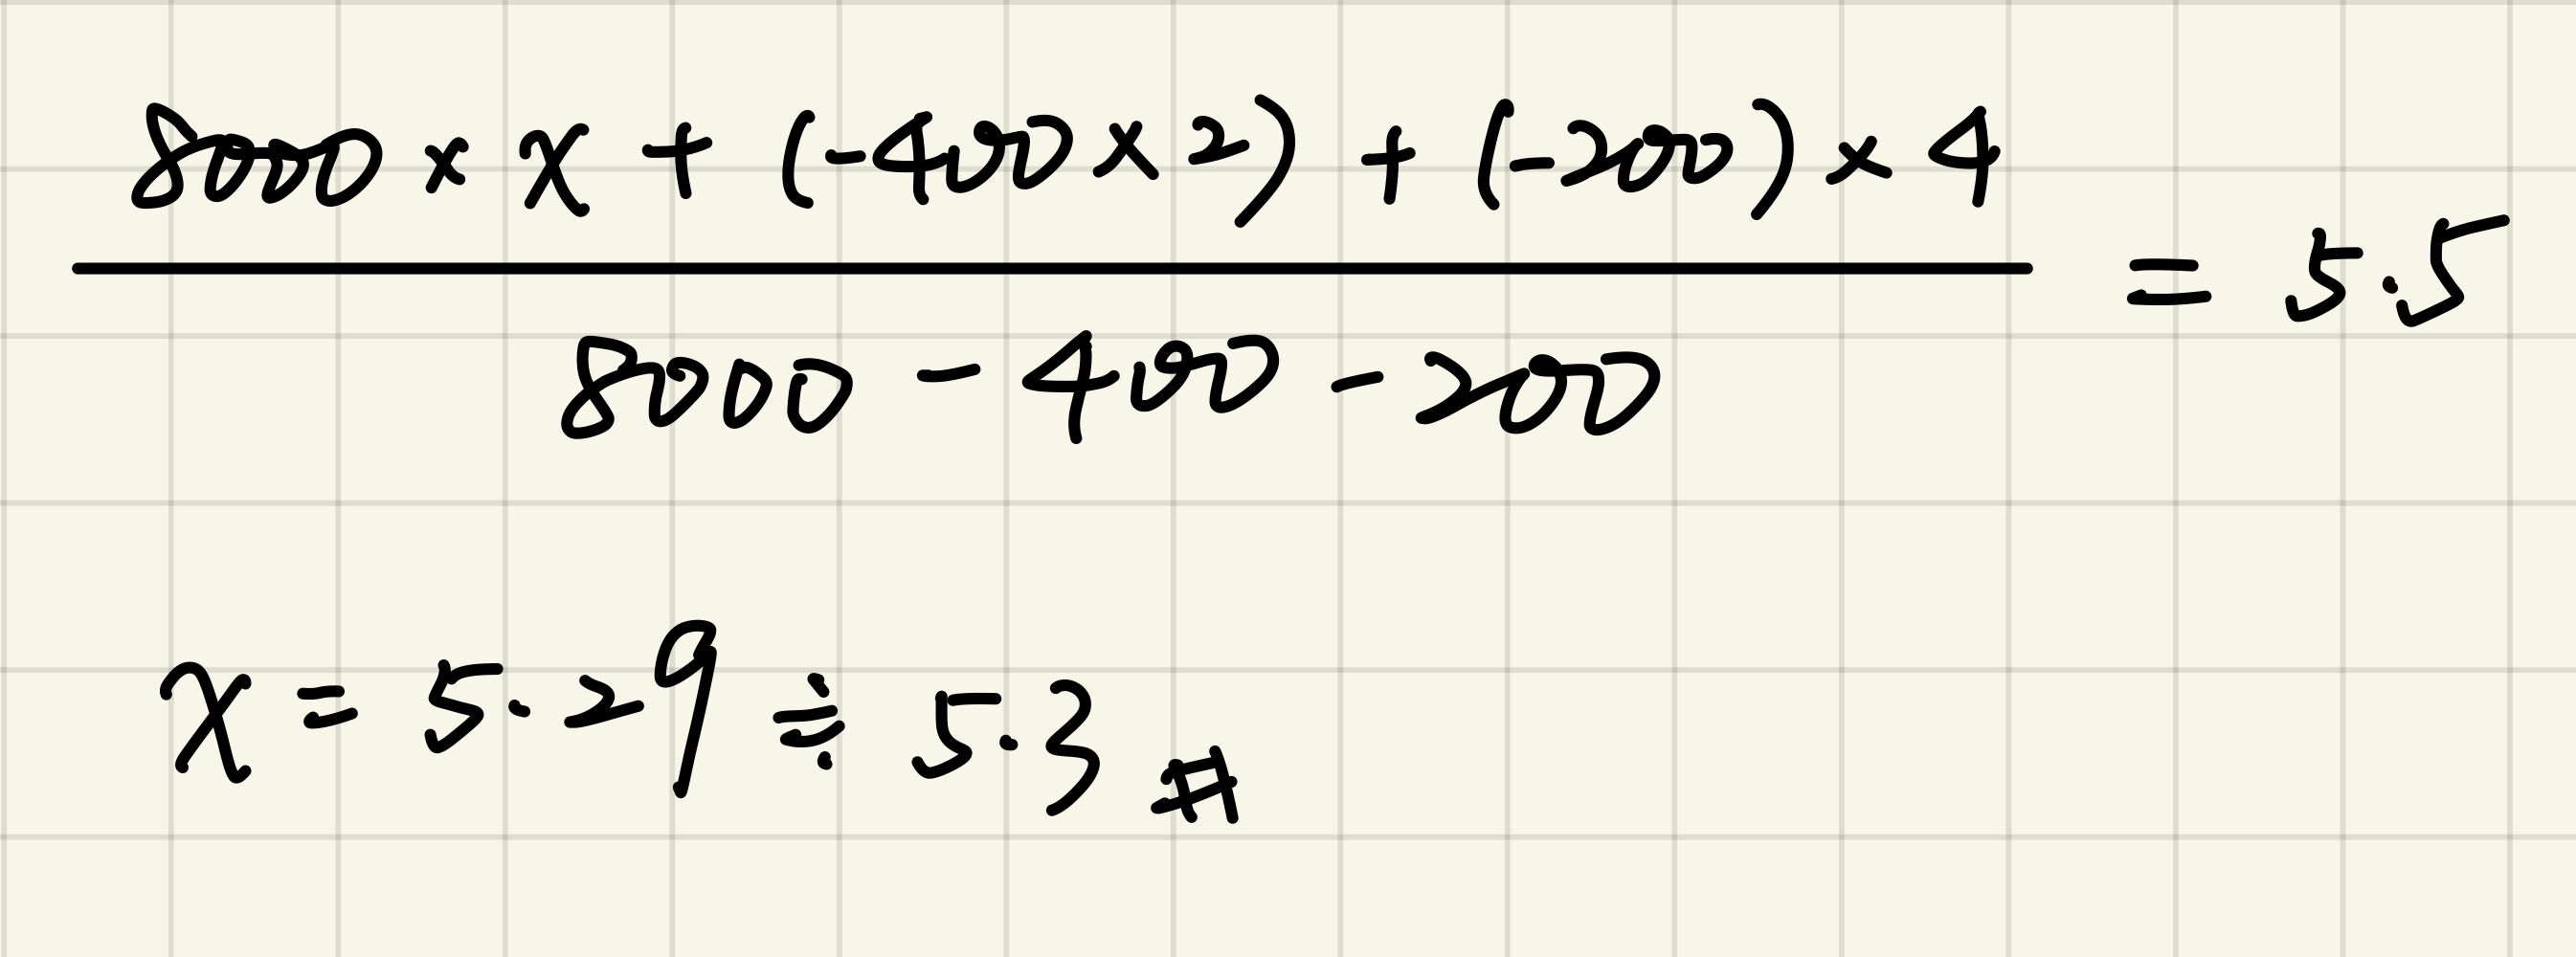 8000 × x + (-400 × 2) + (-200) × 4
8000 - 400 - 200
= 5.5
x = 5.29 ≑ 5.3 #